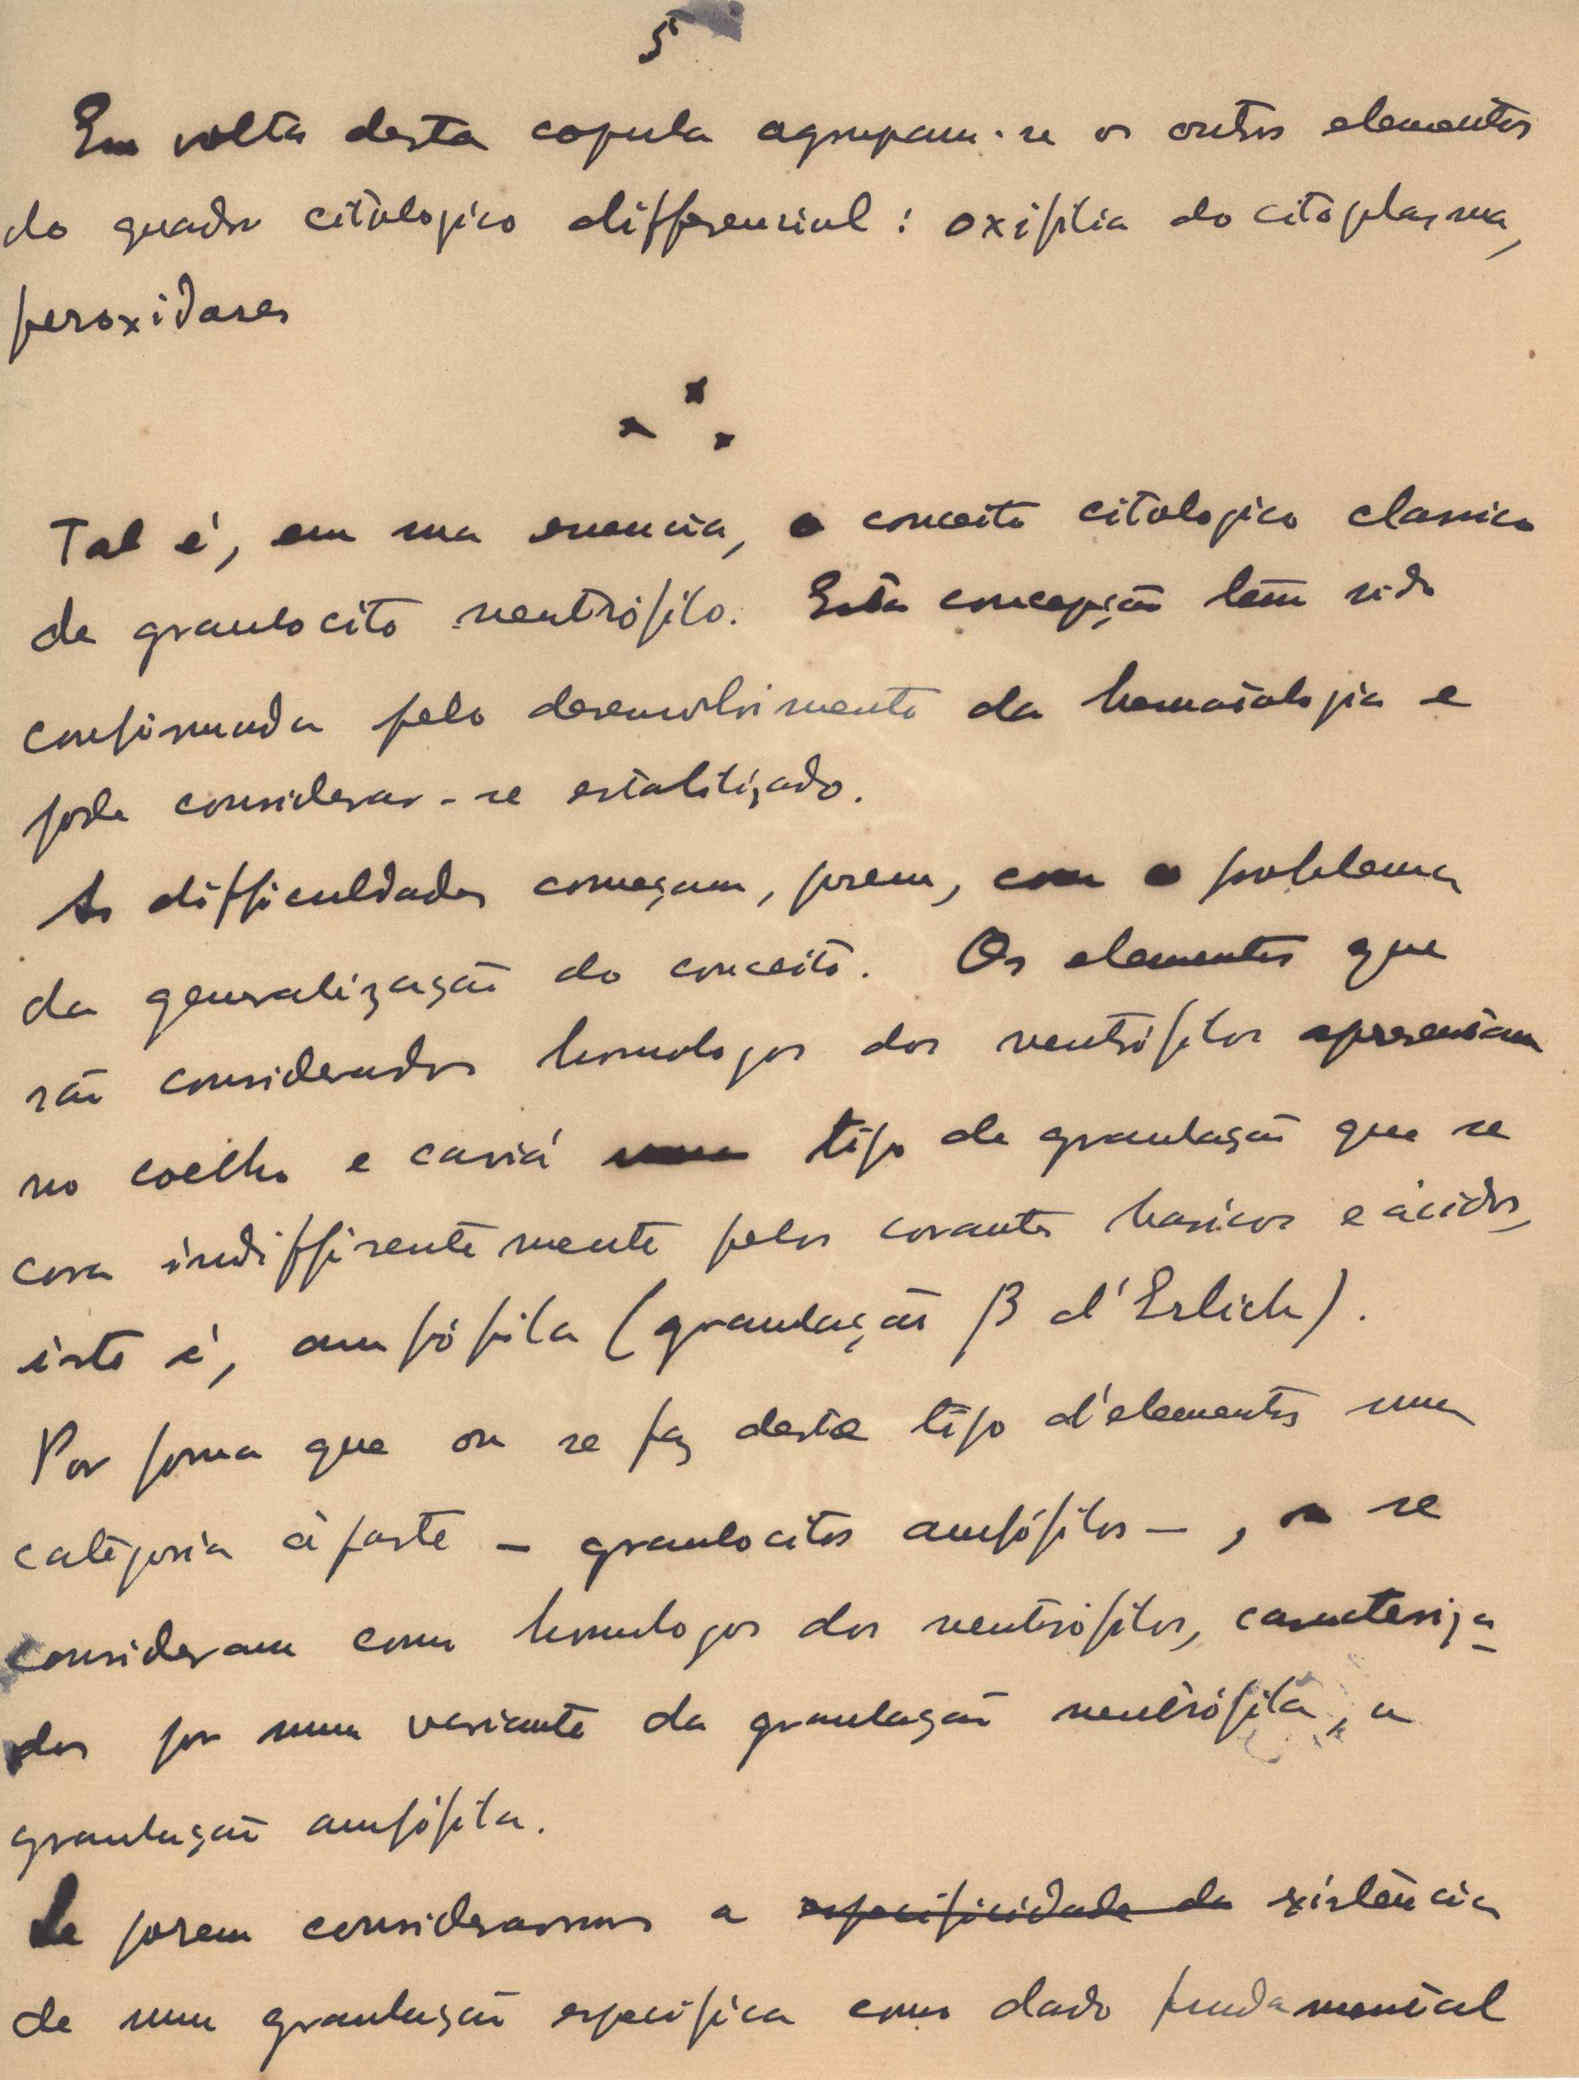 5
Em volta desta copula agrupam-se os outros elementos
do quadro citologico differencial: oxifilia do citoplasma,
peroxidases
Tal é, em sua essencia, o conceito citologico classico
de granulocito neutrófilo. Esta concepção tem sido
confirmada pelo desenvolvimento da hematologia e
pode considerar-se estabilizado.
As difficuldades começam, porem, com o problema
da generalização do conceito. Os elementos que
são considerados homologos dos neutrófilos apresentam
no coelho e caviá tipo de granulação que se
cora indifferentemente pelos corantes basicos e ácidos,
isto é, amfófila (granulação β d'Erlich).
Por forma que ou se faz deste tipo d'elementos uma
categoria á parte – granulocitos amfófilos –, ou se
consideram como homologos dos neutrófilos, caracteriza-
dos por uma variante da granulação neutrófila, a
granulação amfófila.
Se porem considerarmos a especificidade da existência
de uma granulação especifica como dado fundamental